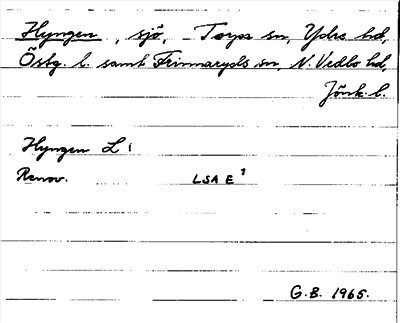 Hyngen, sjö, Torpa sn, Ydre hd,
Östg. l. samt Frinnaryds sn, N. Vedbo hd,
Jönk. l.
Hyngen L:
Renov. LSA E⁷
G.B. 1965.